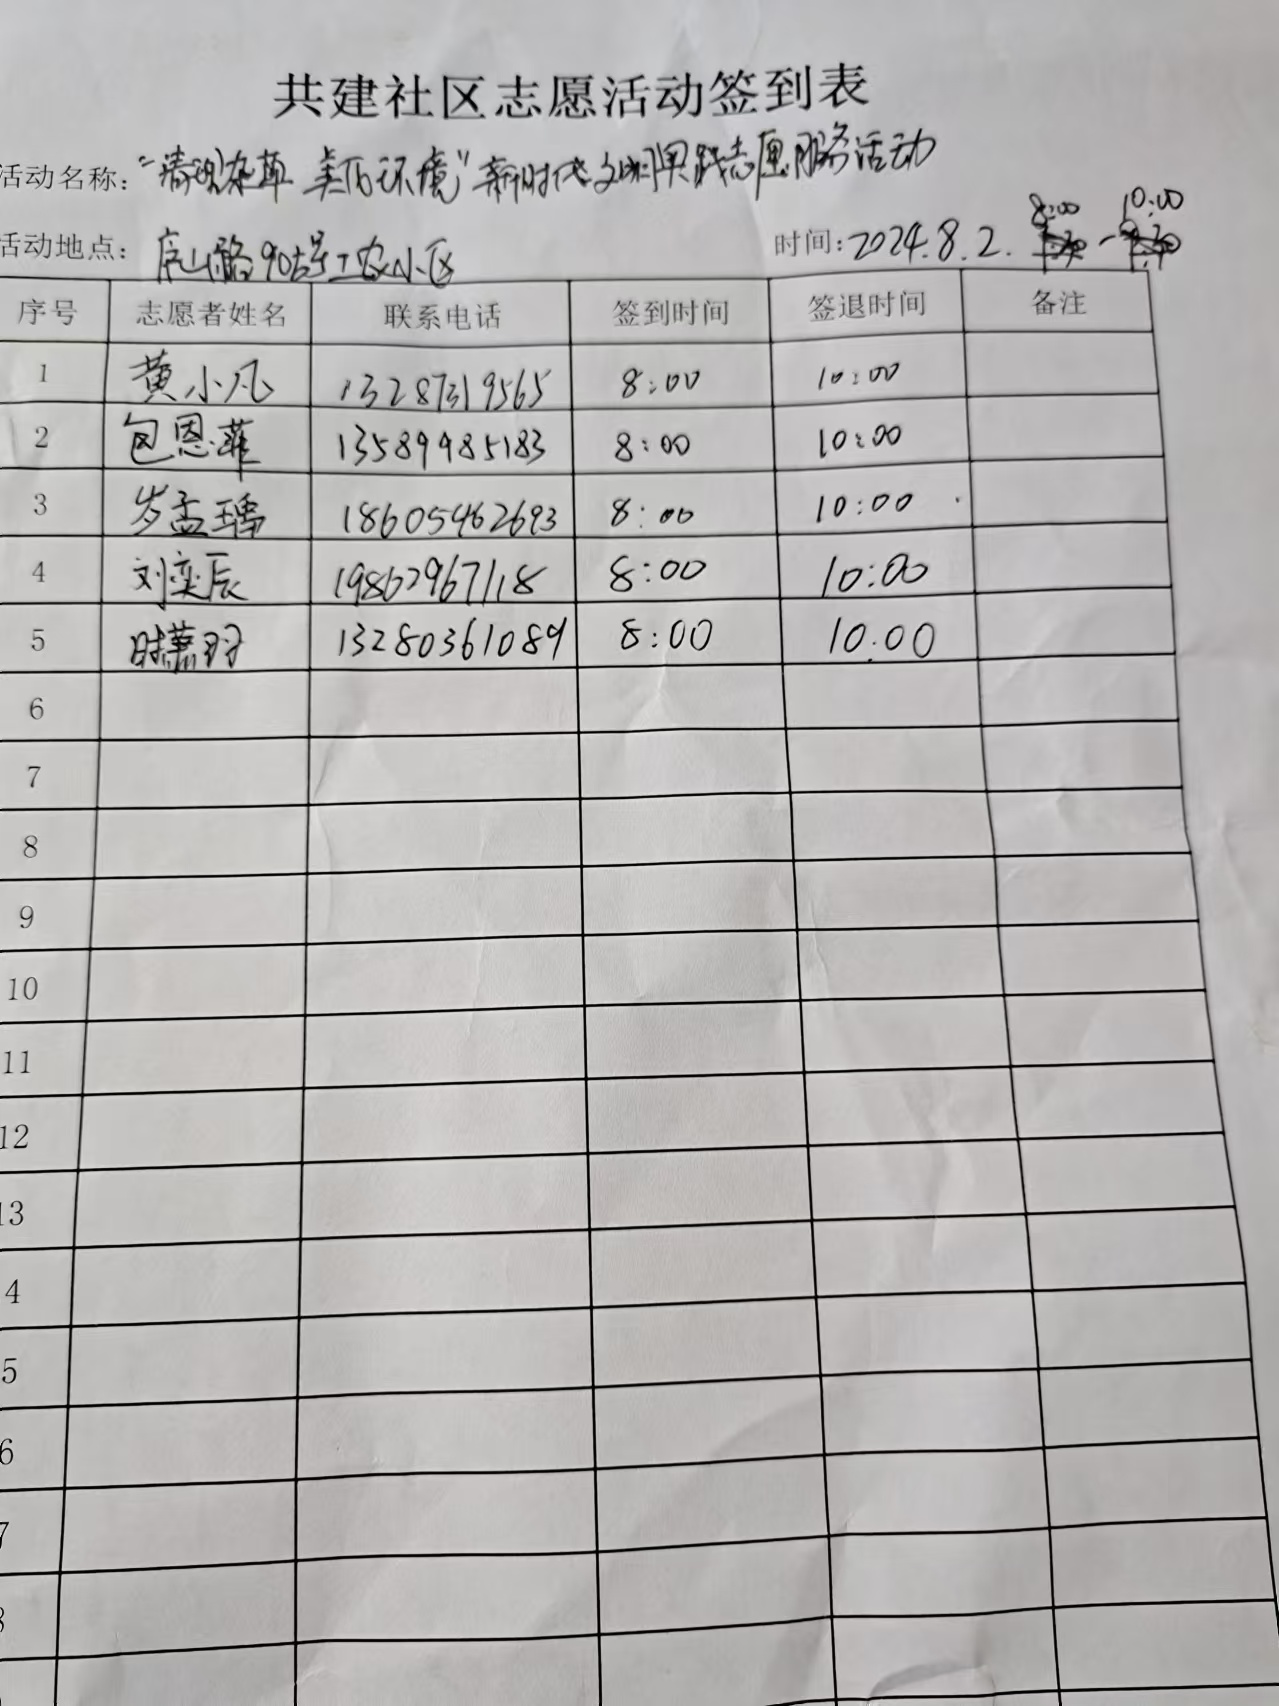 共建社区志愿活动签到表
活动名称：“清理杂草 美化环境”新时代文明实践志愿服务活动
活动地点： 路90号工农小区 时间：2024.8.2. 8:00 - 10:00
序号 志愿者姓名 联系电话 签到时间 签退时间 备注
1 黄小凡 13287319565 8:00 10:00
2 包恩菲 13589985183 8:00 10:00
3 岁孟瑀 18605462693 8:00 10:00
4 刘奕辰 19862967118 8:00 10:00
5 时萧羽 13280361089 8:00 10.00
6
7
8
9
10
11
12
13
4
5
6
7
8